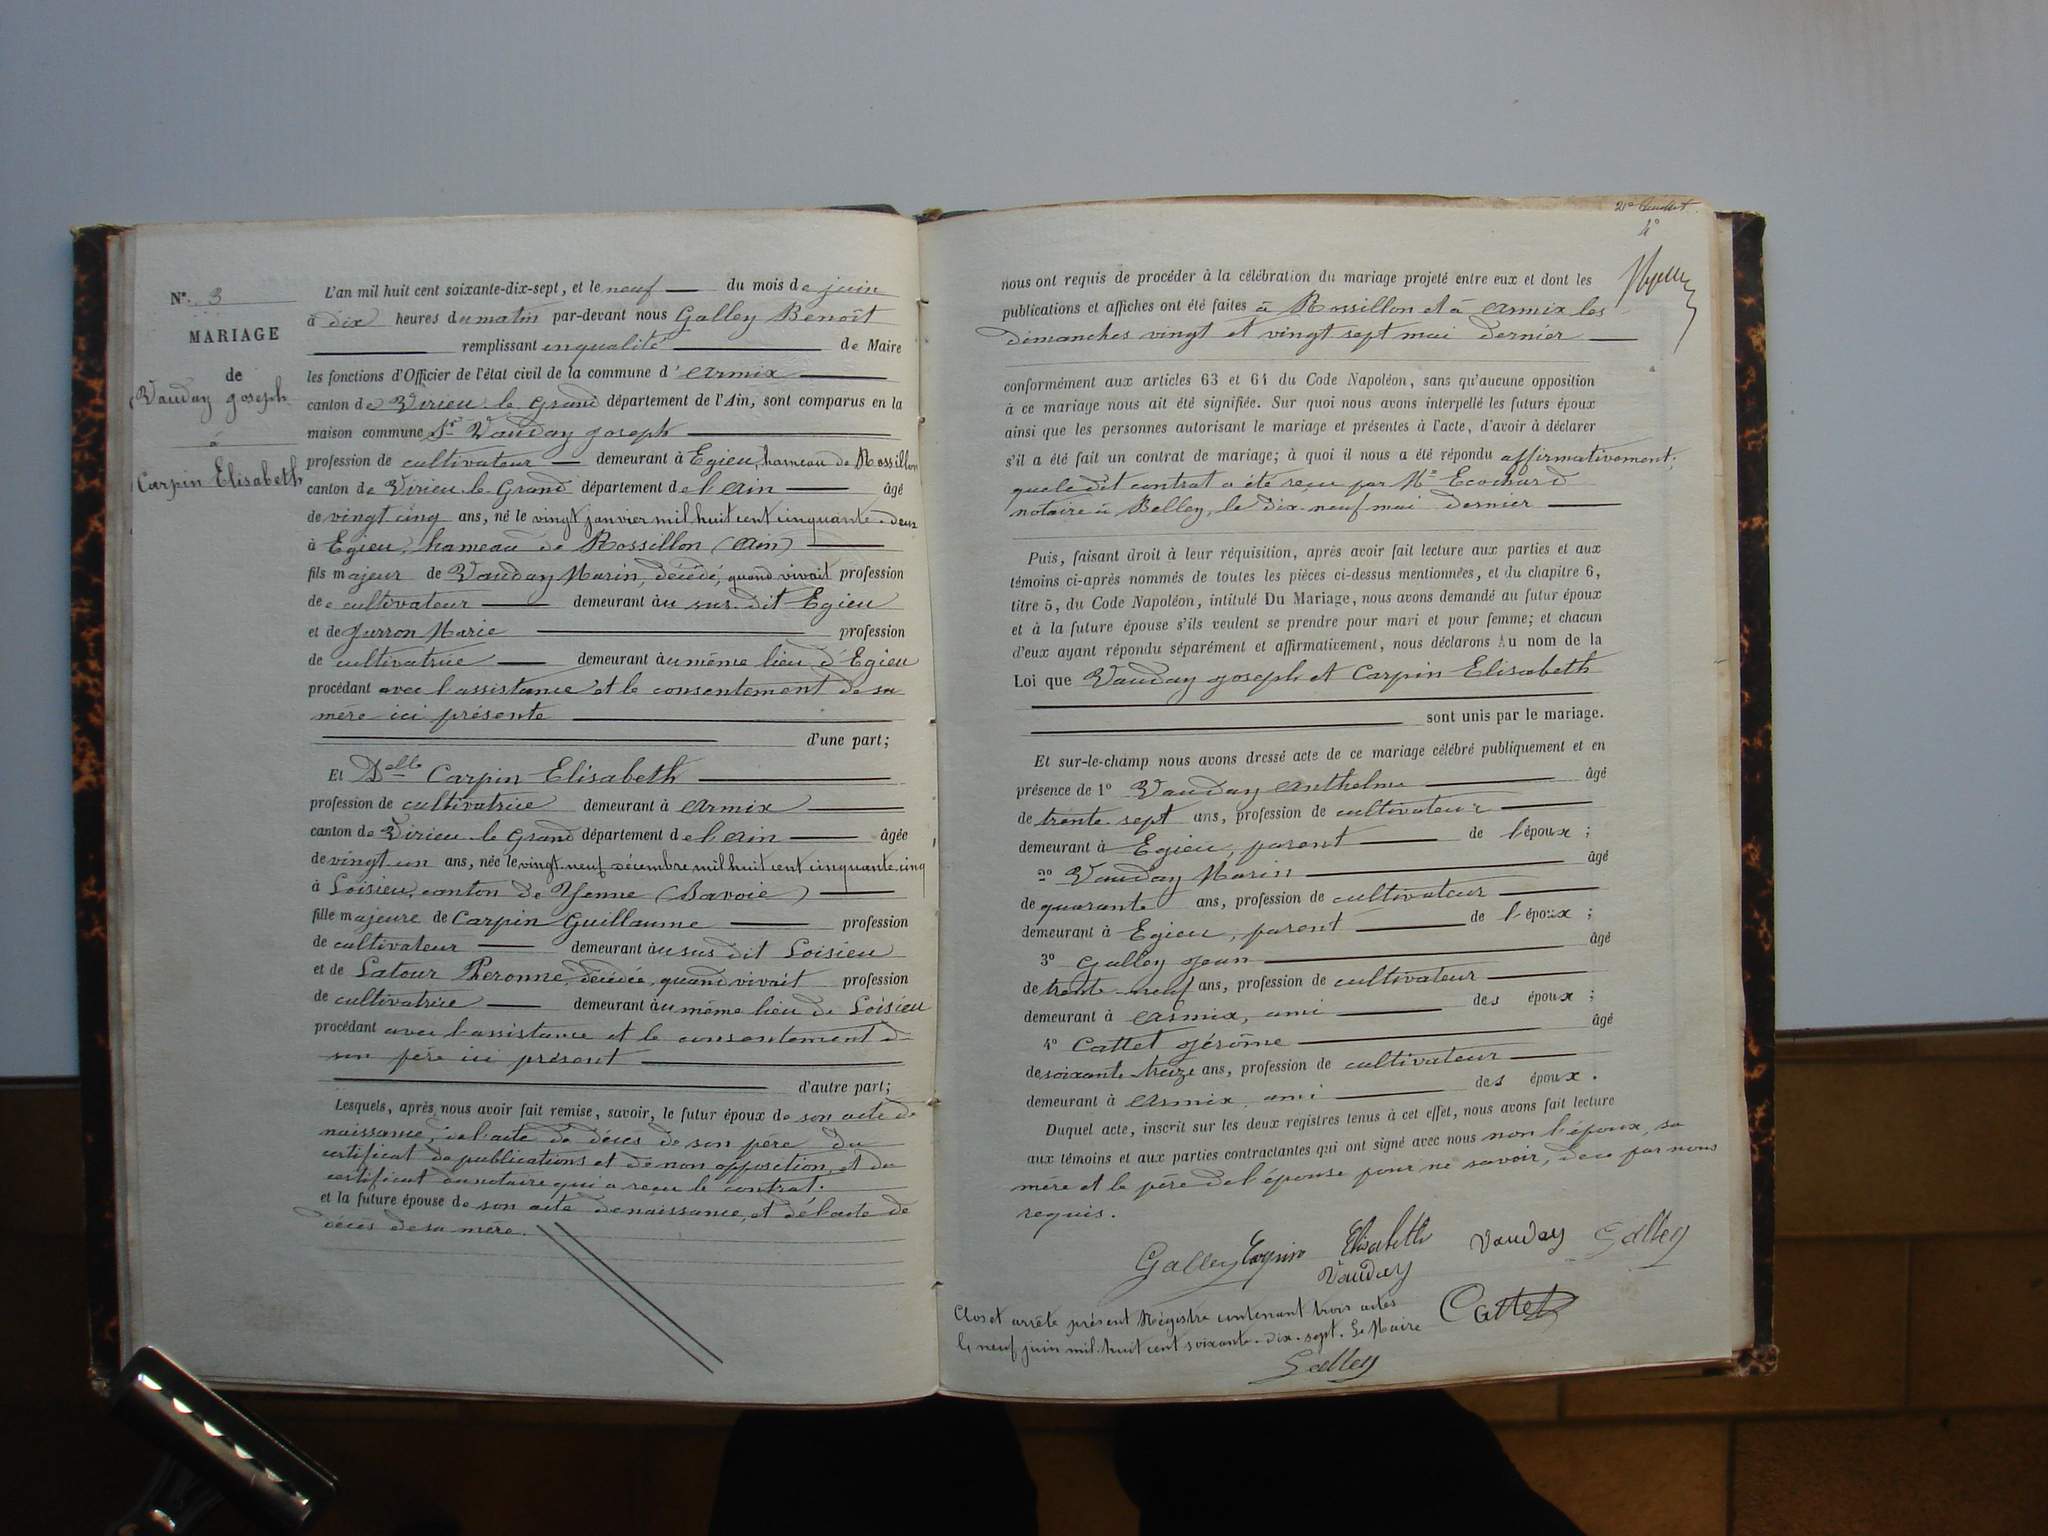 N°. 3
MARIAGE
de
Vauday joseph
à
Carpin Elisabeth
L'an mil huit cent soixante-dix-sept, et le neuf du mois de juin
à dix heures du matin par-devant nous Galley Benoît
remplissant en qualité de Maire
les fonctions d'Officier de l'état civil de la commune d'Armix
canton de Virieu le Grand département de l'Ain, sont comparus en la
maison commune Sr Vauday joseph
profession de cultivateur demeurant à Egieu, hameau de Rossillon
canton de Virieu le Grand département de l'Ain âgé
de vingt cinq ans, né le vingt janvier mil huit cent cinquante-deux
à Egieu, hameau de Rossillon (Ain)
fils majeur de Vauday Marin, décédé, quand vivait profession
de cultivateur demeurant au sus-dit Egieu
et de Jurron Marie profession
de cultivatrice demeurant au même lieu d'Egieu
procédant avec l'assistance et le consentement de sa
mère ici présente
d'une part;
Et Delle Carpin Elisabeth
profession de cultivatrice demeurant à Armix
canton de Virieu le Grand département de l'Ain âgée
de vingt-un ans, née le vingt-neuf décembre mil huit cent cinquante-cinq
à Loisieu, canton de Yenne (Savoie)
fille majeure de Carpin Guillaume profession
de cultivateur demeurant au sus dit Loisieu
et de Latour Péronne, décédée, quand vivait profession
de cultivatrice demeurant au même lieu de Loisieu
procédant avec l'assistance et le consentement de
son père ici présent
d'autre part;
Lesquels, après nous avoir fait remise, savoir, le futur époux de son acte de
naissance, de l'acte de décès de son père du
certificat de publications et de non opposition, et du
certificat du notaire qui a reçu le contrat.
et la future épouse de son acte de naissance, et de l'acte de
décès de sa mère.
2e feuillet
4e
nous ont requis de procéder à la célébration du mariage projeté entre eux et dont les
publications et affiches ont été faites à Rossillon et à Armix les
dimanches vingt et vingt sept mai dernier
conformément aux articles 63 et 64 du Code Napoléon, sans qu'aucune opposition
à ce mariage nous ait été signifiée. Sur quoi nous avons interpellé les futurs époux
ainsi que les personnes autorisant le mariage et présentes à l'acte, d'avoir à déclarer
s'il a été fait un contrat de mariage; à quoi il nous a été répondu affirmativement;
que le dit contrat a été reçu par Me Ecochard
notaire à Belley, le dix-neuf mai dernier
Puis, faisant droit à leur réquisition, après avoir fait lecture aux parties et aux
témoins ci-après nommés de toutes les pièces ci-dessus mentionnées, et du chapitre 6,
titre 5, du Code Napoléon, intitulé Du Mariage, nous avons demandé au futur époux
et à la future épouse s'ils veulent se prendre pour mari et pour femme; et chacun
d'eux ayant répondu séparément et affirmativement, nous déclarons Au nom de la
Loi que Vauday joseph et Carpin Elisabeth
sont unis par le mariage.
Et sur-le-champ nous avons dressé acte de ce mariage célébré publiquement et en
présence de 1° Vauday Anthelme âgé
de trente-sept ans, profession de cultivateur
demeurant à Egieu, parent de l'époux;
2° Vauday Marin âgé
de quarante ans, profession de cultivateur
demeurant à Egieu, parent de l'époux;
3° Galley Jean âgé
de trente-neuf ans, profession de cultivateur
demeurant à Armix, ami des époux;
4° Cattet Jérôme âgé
de soixante-treize ans, profession de cultivateur
demeurant à Armix, ami des époux.
Duquel acte, inscrit sur les deux registres tenus à cet effet, nous avons fait lecture
aux témoins et aux parties contractantes qui ont signé avec nous non l'époux, sa
mère et le père de l'épouse pour ne savoir, de ce par nous
requis.
Galley Carpin Elisabeth Vauday Galley
Vauday
Cattet
Clos et arrêté présent Régistre contenant trois actes
le neuf juin mil-huit cent soixante-dix-sept. Le Maire
Galley